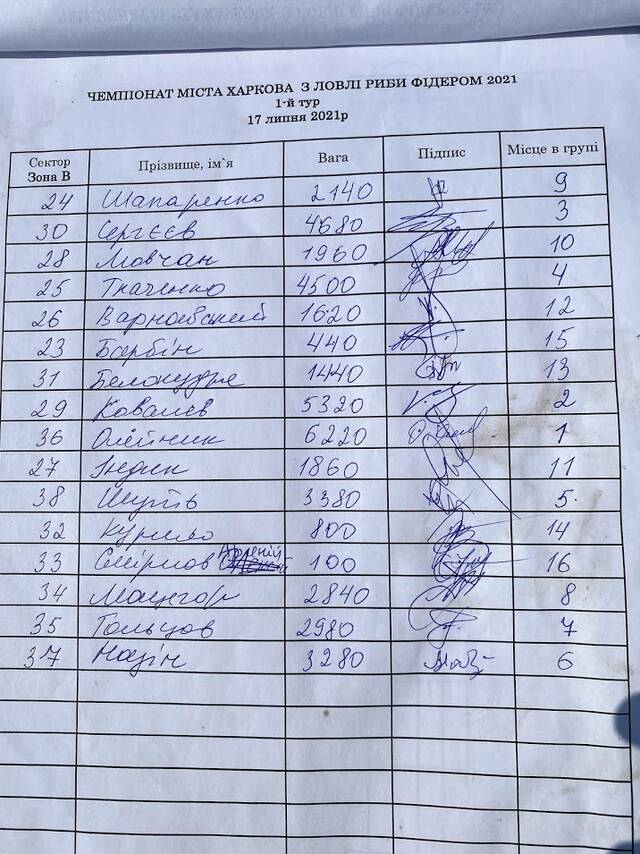 ЧЕМПІОНАТ МІСТА ХАРКОВА З ЛОВЛІ РИБИ ФІДЕРОМ 2021
1-й тур
17 липня 2021р
Сектор Зона В Прізвище, ім`я Вага Підпис Місце в групі
24 Шапаренко 2140 9
30 Сергєєв 4680 3
28 Мовчан 1960 10
25 Ткаченко 4500 4
26 Варновський 1620 12
23 Барбін 440 15
31 1440 13
29 Ковалев 5320 2
36 Олейник 6220 1
27 Індик 1860 11
38 Шутів 3380 5.
32 Курило 800 14
33 Смірнов Арсеній 100 16
34 2840 8
35 Гольцов 2980 7
37 Назін 3280 6